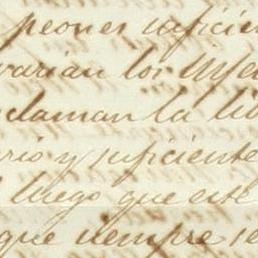 peones suficien
varian los
claman la
ario y suficiente
luego que este
que siempre se